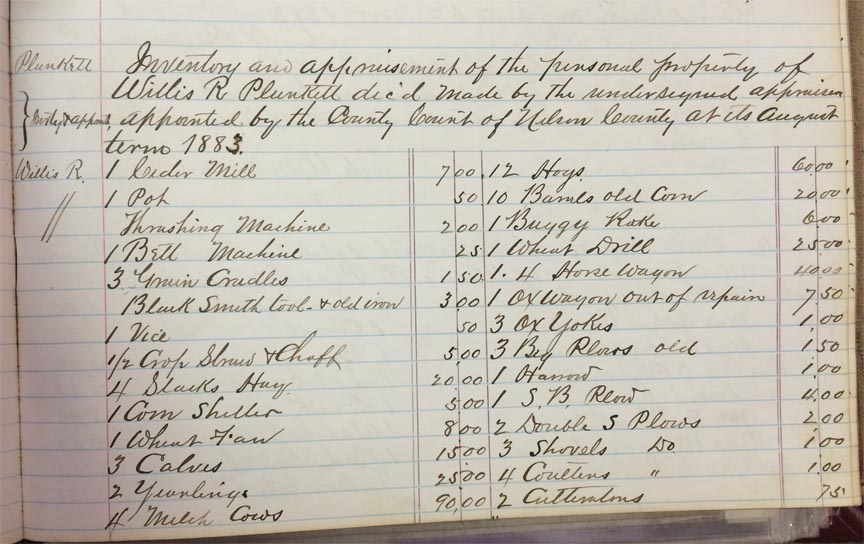 Plunkett
Willis R.
"
Inventory and appraisement of the personal property of
Willis R Plunkett dec'd made by the undersigned appraisers
appointed by the County Court of Nelson County at its August
term 1883.
1 Cider Mill 7 00
1 Pot 50
Thrashing Machine 2 00
1 Belt Machine 25
3 Grain Cradles 1 50
Black Smith tool & old iron 3 00
1 Vice 50
1/2 Crop Straw & Chaff 5 00
4 Stacks Hay 20 00
1 Corn Sheller 5 00
1 Wheat Fan 8 00
3 Calves 15 00
2 Yearlings 25 00
4 Milch Cows 90,00
12 Hogs 60 00
10 Barrels old Corn 20 00
1 Buggy Rake 6 00
1 Wheat Drill 25 00
1. 4 Horse Wagon 40 00
1 Ox Wagon out of repair 7 50
3 Ox Yokes 1 00
3 Big Plows old 1 50
1 Harrow 1 00
1 S. B. Plow 4 00
2 Double S Plows 2 00
3 Shovels Do 1 00
4 Coulters " 1.00
2 75